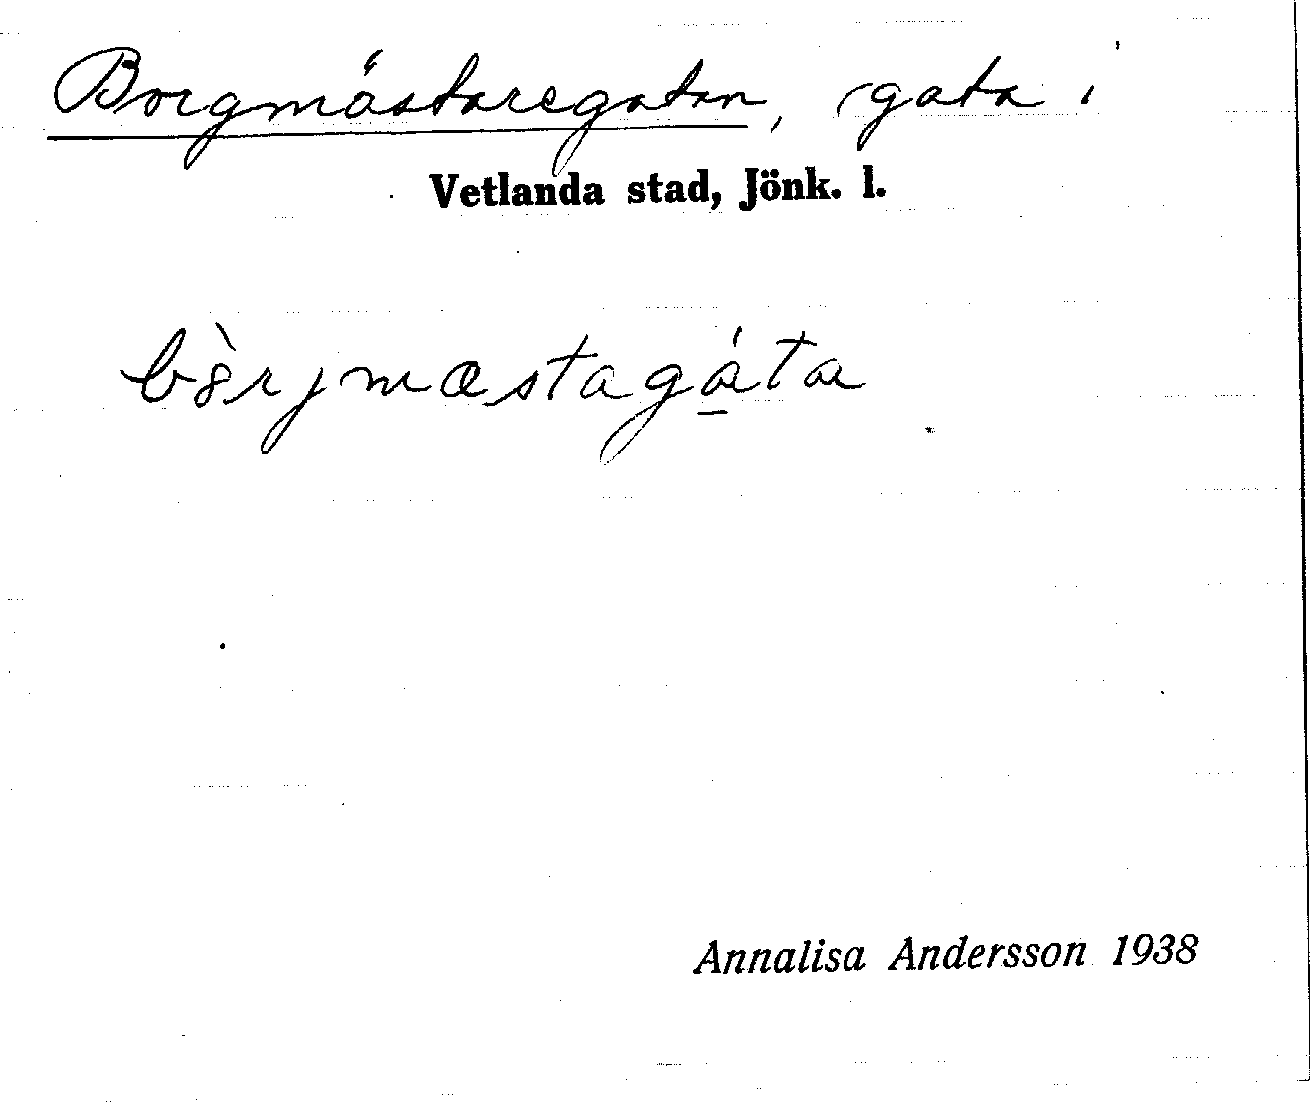 Borgmästaregatan, gata i
Vetlanda stad, Jönk. l.
bò̀rjmæstagá̱ta
Annalisa Andersson 1938